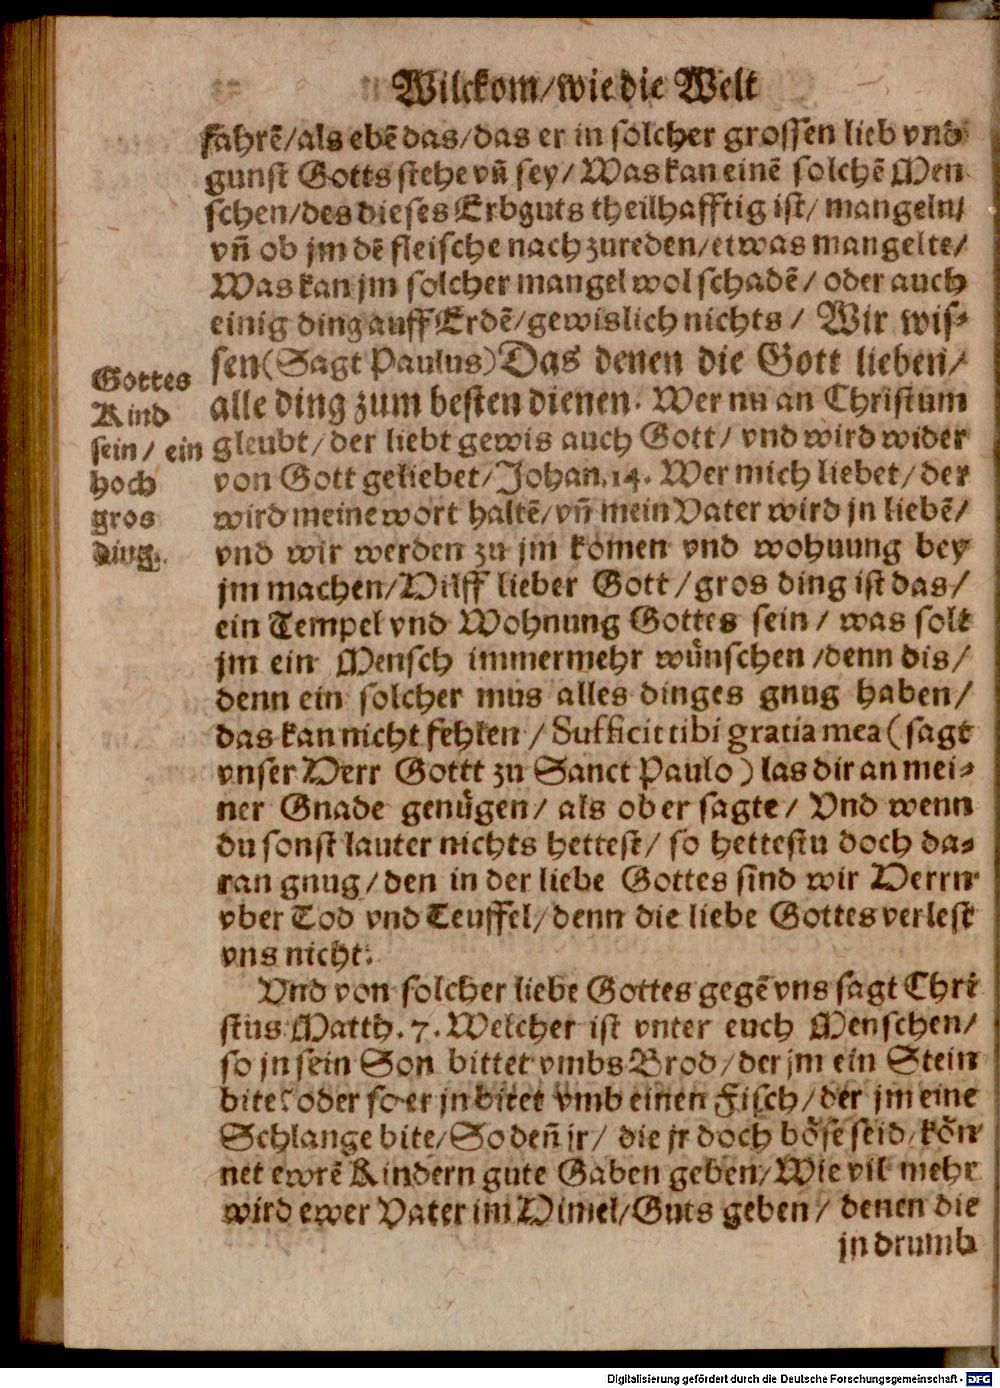 Wilckom/wie die Welt
fahrē/als ebē das/das er in solcher grossen lieb vnd
gunst Gotts stehe vn̄ sey/ Was kan einē solchē Men
schen/des dieses Erbguts theilhafftig ist/ mangeln/
vn̄ ob jm dē fleische nach zureden/etwas mangelte/
Was kan jm solcher mangel wol schadē/ oder auch
einig ding auff Erdē/gewislich nichts/ Wir wis⸗
sen(Sagt Paulus)Das denen die Gott lieben/
alle ding zum besten dienen. Wer nu an Christum
gleubt/der liebt gewis auch Gott/ vnd wird wider
von Gott geliebet/Johan.14. Wer mich liebet/der
wird meine wort haltē/vn̄ mein Vater wird jn liebē/
vnd wir werden zu jm komen vnd wohnung bey
jm machen/Hilff lieber Gott/gros ding ist das/
ein Tempel vnd Wohnung Gottes sein/ was solt
jm ein Mensch immermehr wünschen/denn dis/
denn ein solcher mus alles dinges gnug haben/
das kan nicht fehlen/Sufficit tibi gratia mea(sagt
vnser Herr Gottt zu Sanct Paulo) las dir an mei⸗
ner Gnade genügen/ als ob er sagte/ Vnd wenn
du sonst lauter nichts hettest/ so hettestu doch da⸗
ran gnug/den in der liebe Gottes sind wir Herrn
vber Tod vnd Teuffel/denn die liebe Gottes verlest
vns nicht.
Vnd von solcher liebe Gottes gegē vns sagt Chri
stus Matth.7. Welcher ist vnter euch Menschen/
so jn sein Son bittet vmbs Brod/der jm ein Stein
bite? oder so er jn bitet vmb einen Fisch/der jm eine
Schlange bite/So den̄ jr/ die jr doch böse seid/kön
net ewrē Kindern gute Gaben geben/Wie vil mehr
wird ewer Vater im Himel/Guts geben/ denen die
jn drumb
Gottes
Kind
sein/ ein
hoch
gros
ding.
Digitalisierung gefördert durch die Deutsche Forschungsgemeinschaft - DFG